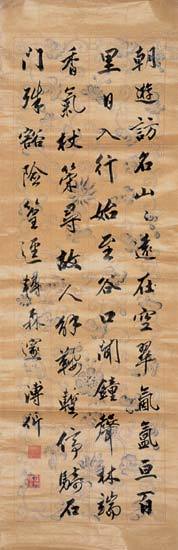 朝遊訪名山〻遠在空翠氛氳亘百
里日入行始至谷口聞鐘聲林端
香氣杖策尋故人解鞍暫停騎石
门殊豁險篁逕轉森邃 溥